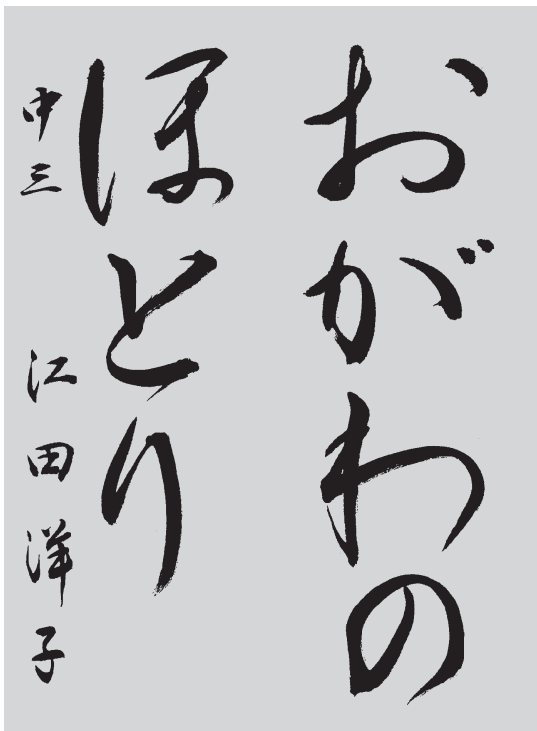 おがわの
ほとり
中三 江田洋子